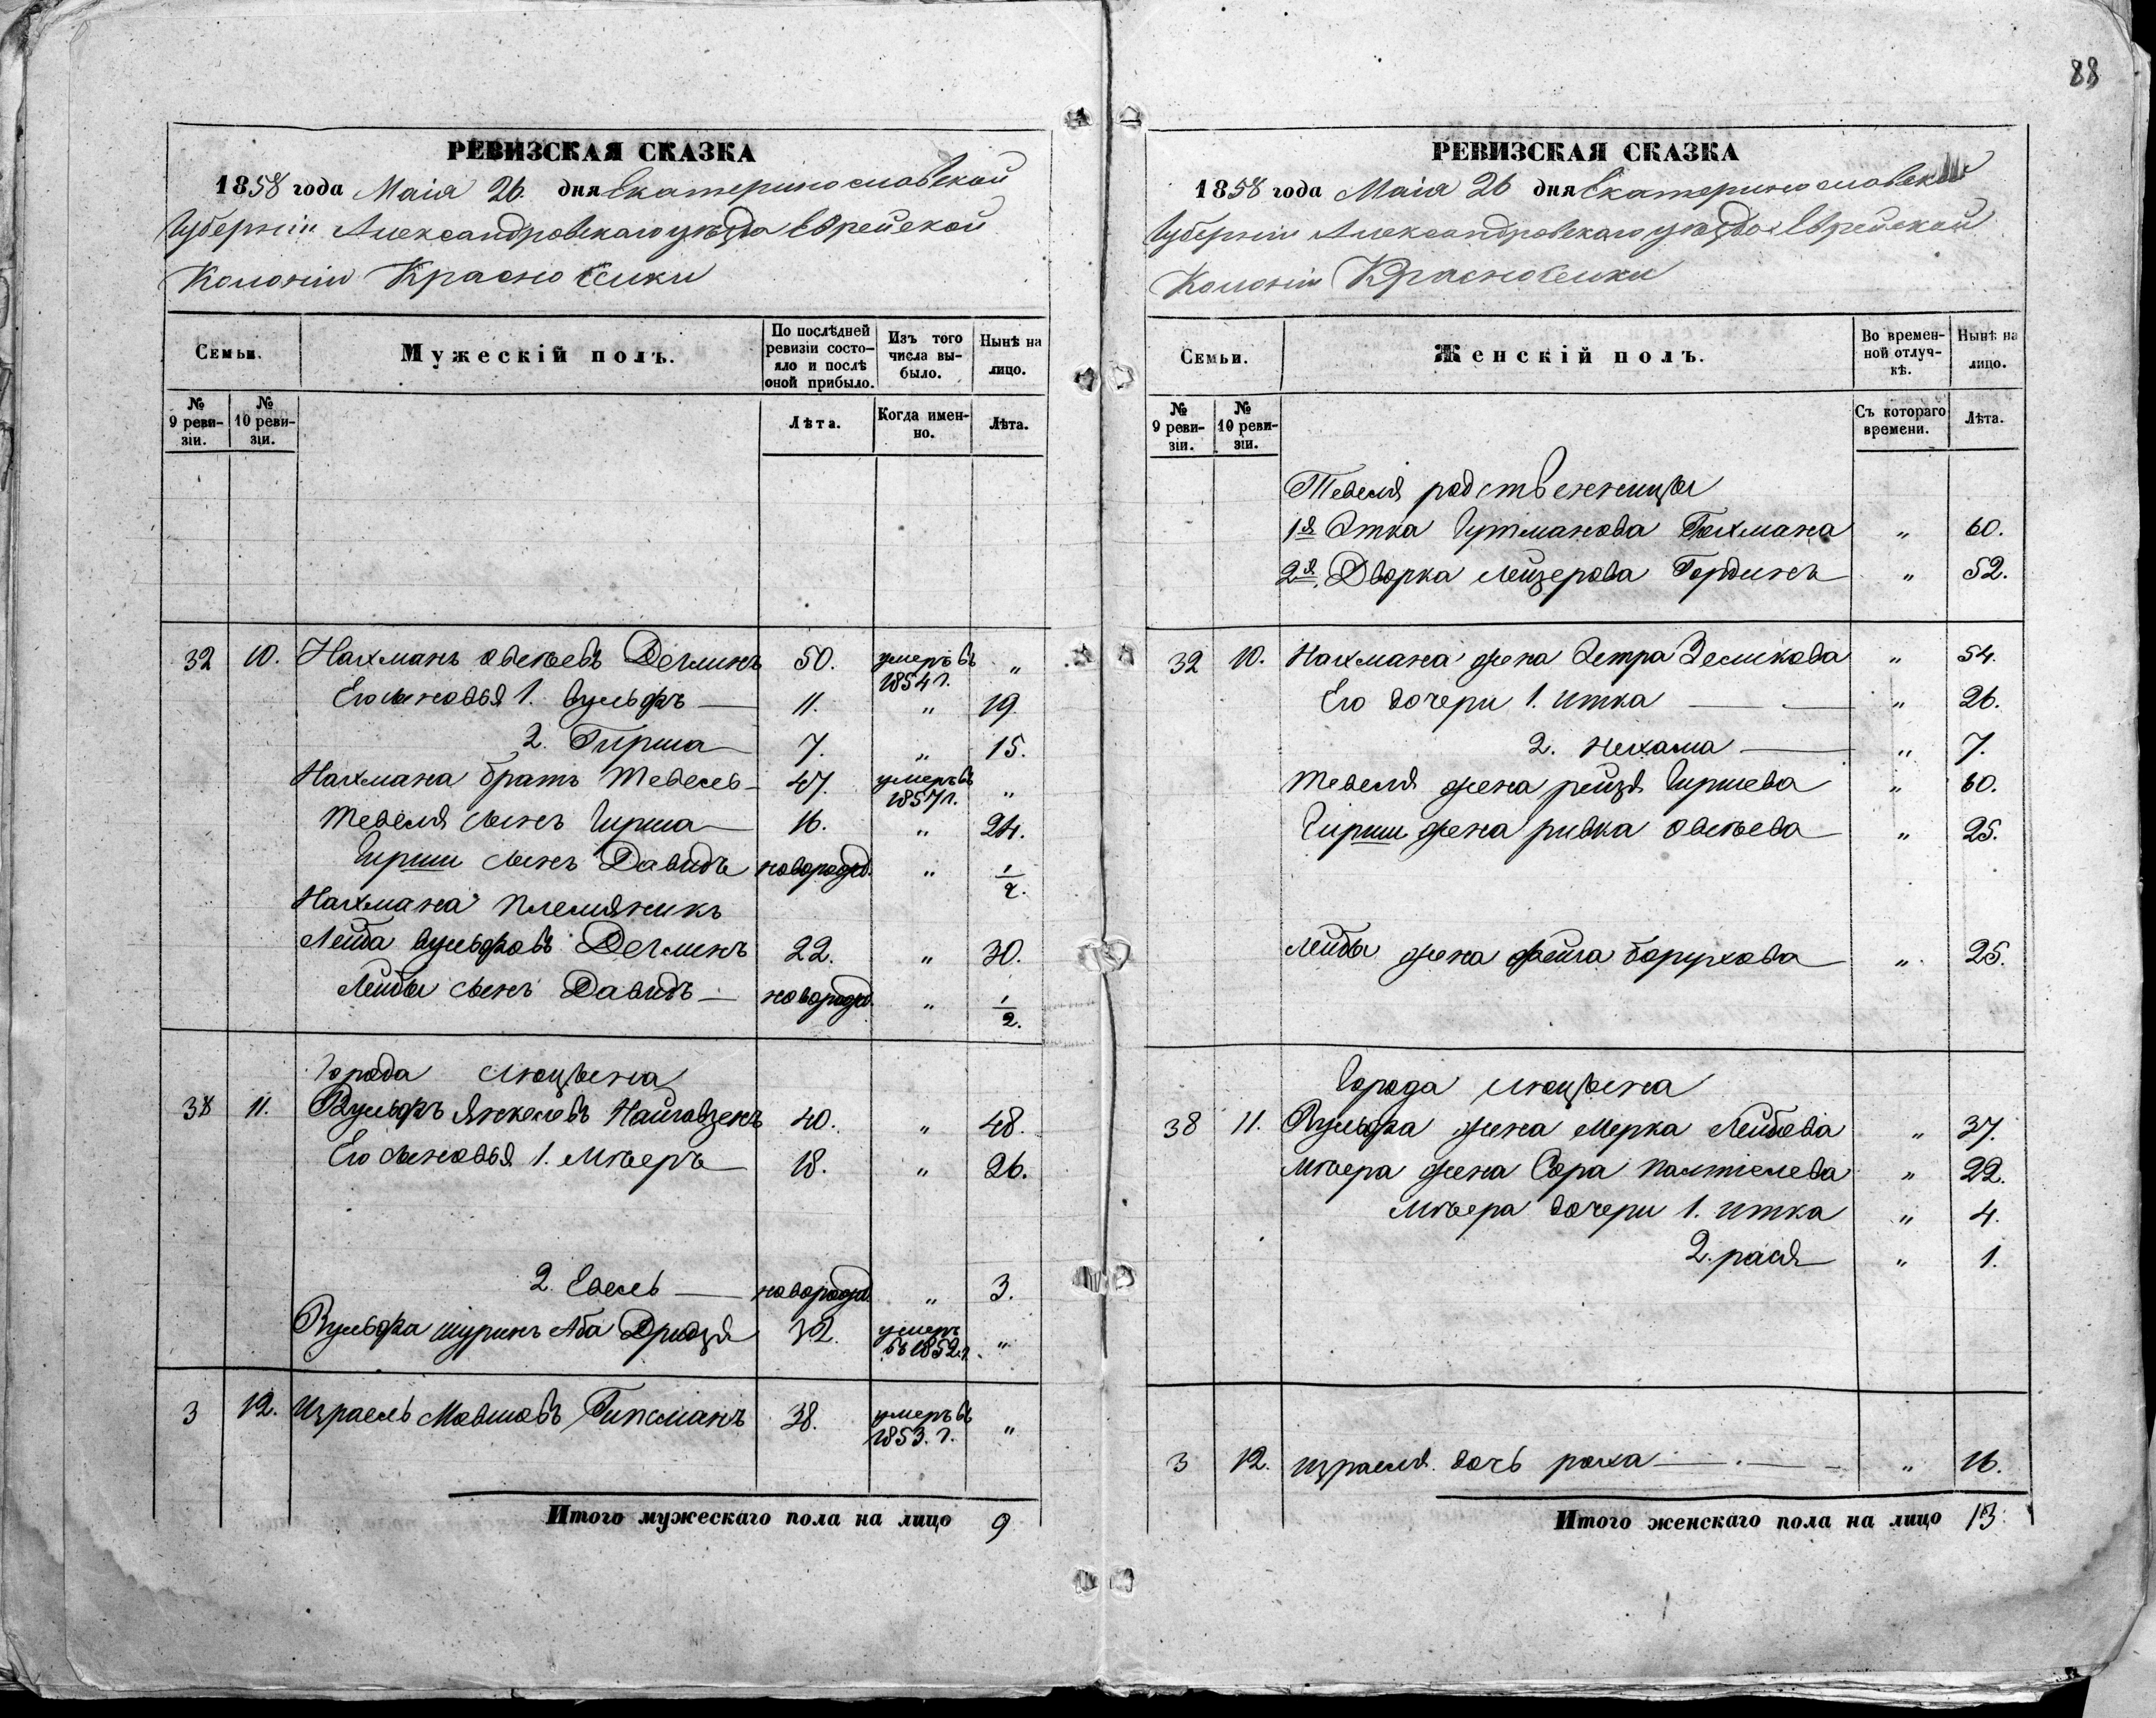 88
РЕВИЗСКАЯ СКАЗКА
1858 года Маія 26. дня Екатеринославской
Губерніи Александровскаго уѣзда Еврейской
Колоніи Красноселки
Семьи.
Мужескій полъ.
По послѣдней ревизіи состояло и послѣ оной прибыло.
Изъ того числа выбыло.
Нынѣ на лицо.
№ 9 ревизіи.
№ 10 ревизіи.
Лѣта.
Когда именно.
Лѣта.
32 10. Нахманъ Овсѣевъ 50. умеръ въ 1854 г. "
Его сыновья 1. Вульфъ — 11. " 19.
2. Гирша — 7. " 15.
Нахмана братъ Тевель — 47. умеръ въ 1857 г. "
Тевеля сынъ Гирша — 16. " 24.
Гирши сынъ Давидъ новорожд. " 1/2.
Нахмана племяникъ
Лейба Вульфовъ 22. " 30.
Лейбы сынъ Давидъ — новорожд. " 1/2.
Города Люцына
38 11. Вульфъ Янкелевъ 40. " 48.
Его сыновья 1. Мѣеръ — 18. " 26.
2. Евель — новорожд. " 3.
Вульфа шуринъ Аба Дридзя 32. умеръ въ 1852 г. "
3 12. Израель Мовшовъ Гипсманъ 38. умеръ въ 1853. г. "
Итого мужескаго пола на лицо 9
РЕВИЗСКАЯ СКАЗКА
1858 года Маія 26 дня Екатеринославской
Губерніи Александровскаго уѣзда Еврейской
Колоніи Красноселки
Семьи.
Женскій полъ.
Во временной отлучкѣ.
Нынѣ на лицо.
№ 9 ревизіи.
№ 10 ревизіи.
Съ котораго времени.
Лѣта.
Тевеля родственницы
1я Этка Гутманова " 60.
2я. Дворка Лейзерова Гординъ " 52.
32 10. Нахмана жена Эстра Зеликова " 54.
Его дочери 1. Итка — " 26.
2. Нехама — " 7.
Тевеля жена Рейзя Гиршева " 60.
Гирши жена Ривка Овсѣева " 25.
Лейбы жена Фейга Борухова " 25.
Города Люцына
38 11. Вульфа жена Мерка Лейбова " 37.
Мѣера жена Сора Палтіелева " 22.
Мѣера дочери 1. Итка " 4.
2. Рася " 1.
3 12. Израеля дочь Роха — " 16.
Итого женскаго пола на лицо 13.